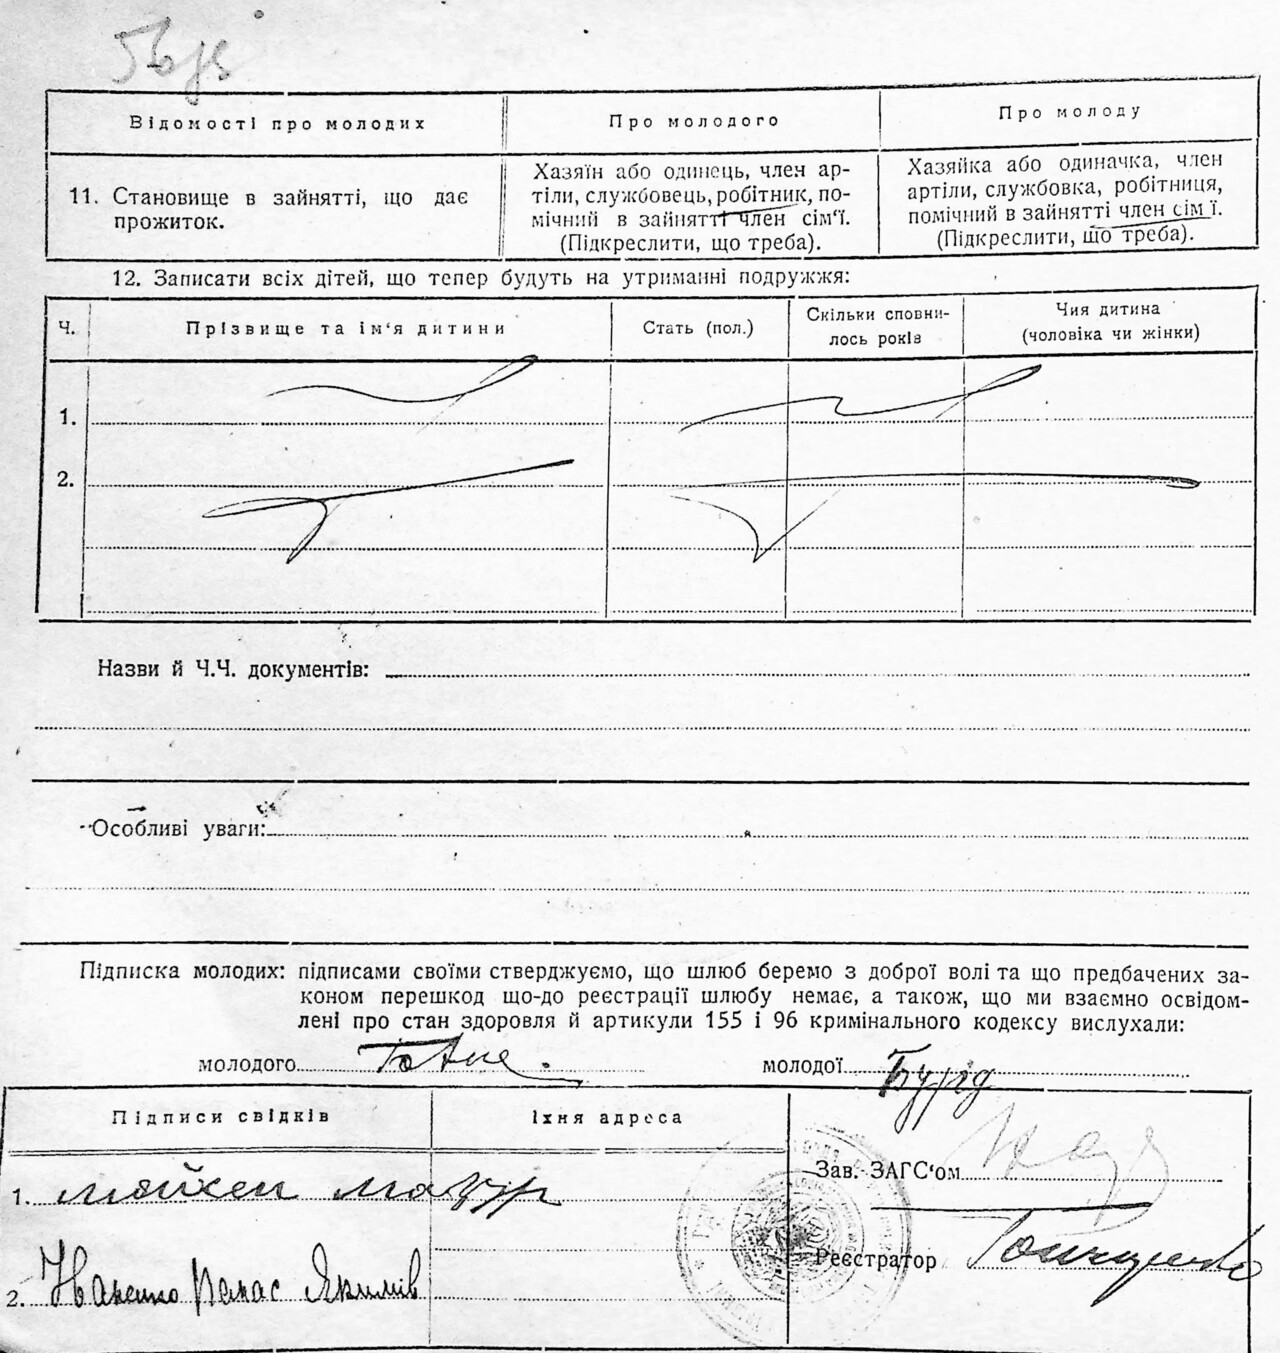 Відомості про молодих
Про молодого
Про молоду
11. Становище в зайнятті, що дає
прожиток.
Хазяїн або одинець, член ар-
тіли, службовець, робітник, по-
мічний в зайнятті член сім'ї.
(Підкреслити, що треба).
Хазяйка або одиначка, член
артіли, службовка, робітниця,
помічний в зайнятті член сім ї.
(Підкреслити, що треба).
12. Записати всіх дітей, що тепер будуть на утриманні подружжя:
Ч.
Прізвище та ім'я дитини
Стать (пол.)
Скільки сповни-
лось років
Чия дитина
(чоловіка чи жінки)
1.
2.
Назви й Ч.Ч. документів:
Особливі уваги:
Підписка молодих: підписами своїми стверджуємо, що шлюб беремо з доброї волі та що предбачених за-
коном перешкод що-до реєстрації шлюбу немає, а також, що ми взаємно освідом-
лені про стан здоровля й артикули 155 і 96 кримінального кодексу вислухали:
молодого
молодої
Підписи свідків
Їхня адреса
Зав. ЗАГС'ом
1. мазур
Реєстратор Гончаренко
2. Панас Якимів